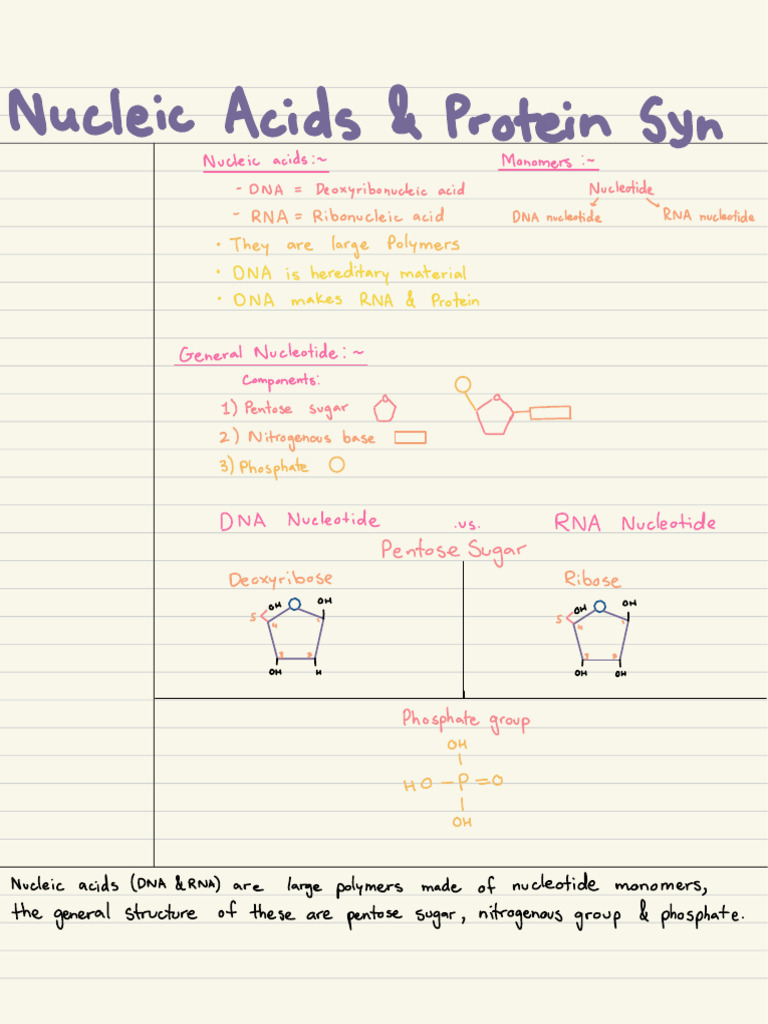 Nucleic Acids & Protein Syn
Nucleic acids:~
- DNA = Deoxyribonucleic acid
- RNA = Ribonucleic acid
• They are large Polymers
• DNA is hereditary material
• DNA makes RNA & Protein
Monomers:~
Nucleotide
DNA nucleotide RNA nucleotide
General Nucleotide:~
Components:
1) Pentose sugar
2) Nitrogenous base
3) Phosphate
DNA Nucleotide .vs. RNA Nucleotide
Pentose Sugar
Deoxyribose
5 OH O OH
4 1
3 2
OH H
Ribose
5 OH O OH
4 1
3 2
OH OH
Phosphate group
OH
HO - P = O
OH
Nucleic acids (DNA & RNA) are large polymers made of nucleotide monomers,
the general structure of these are pentose sugar, nitrogenous group & phosphate.